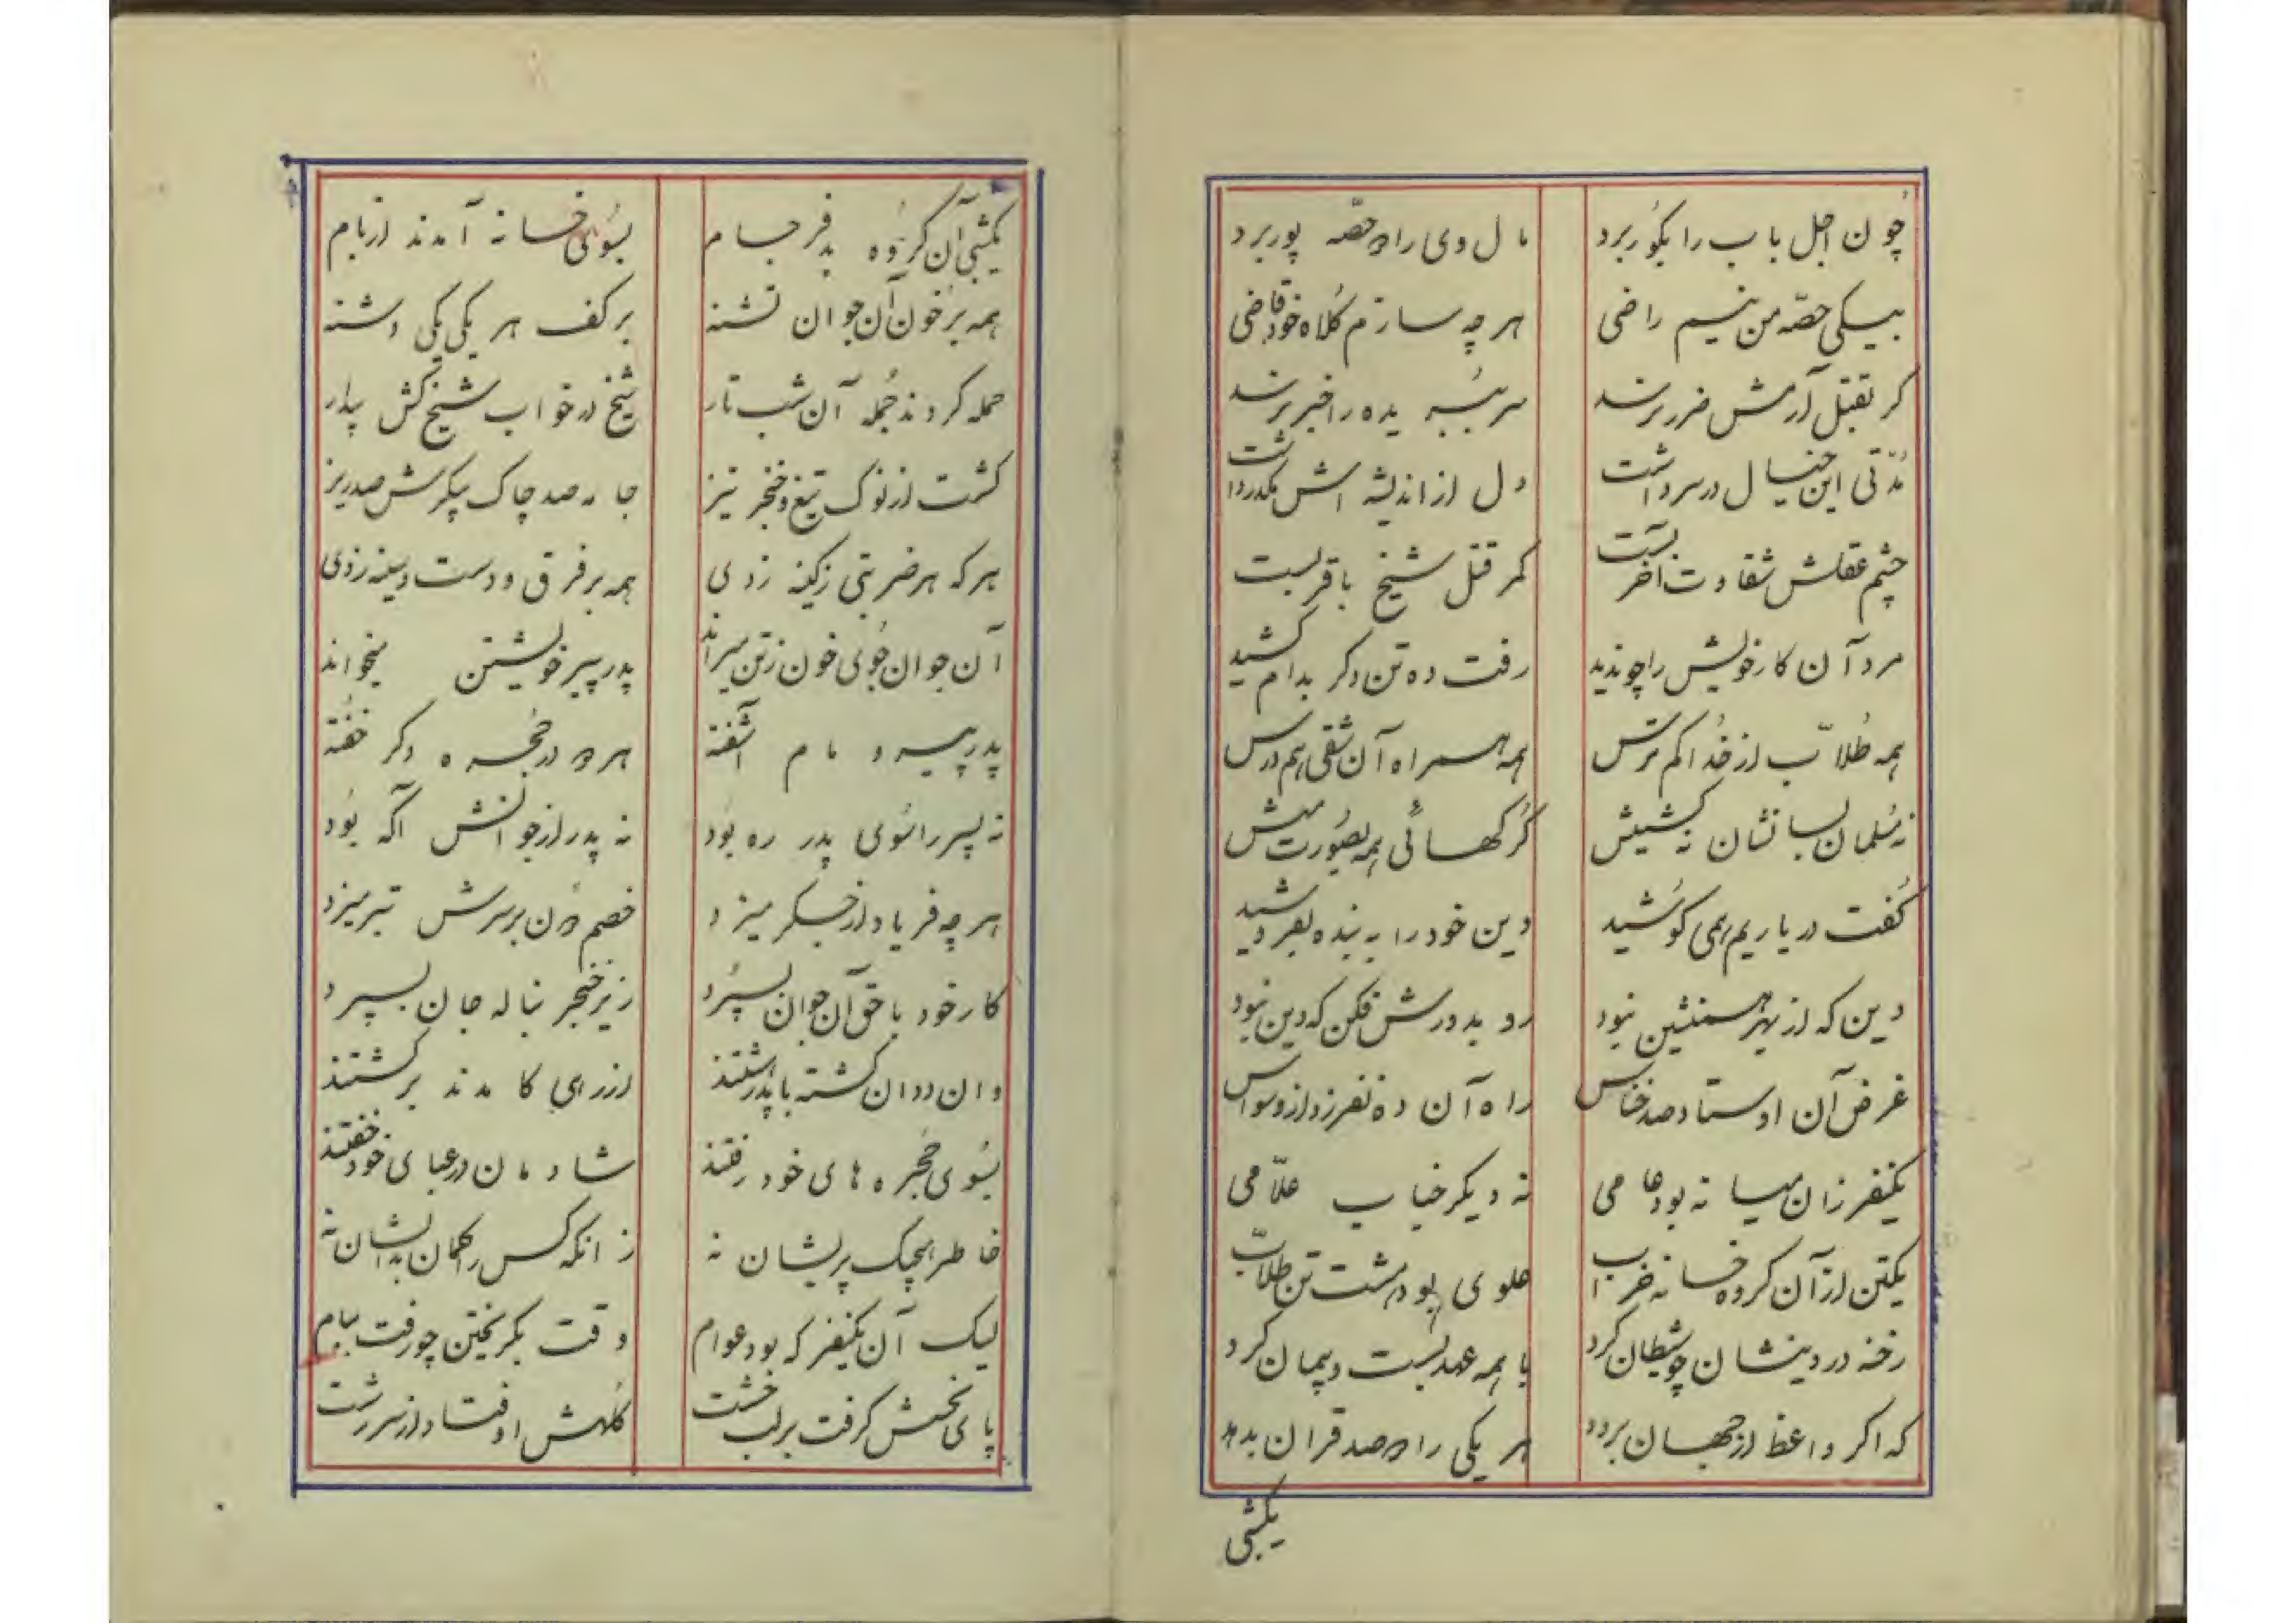 چون اجل باب را بکور برد مال وی را دو حصه پور برد
بیکی حصه من نیم راضی هر چه سازم کلاه خود قاضی
کر تقبل آرمش ضرر برسد سر ببریده را خبر برسد
مدتی این خیال در سر داشت دل از اندیشه اش مکدر داشت
چشم عقلش شقاوت آخر بست کمر قتل شیخ باقر بست
مرد آن کار خویش را چو ندید رفت ده تن دکر بدام کشید
همه طلاب از خدا کم ترس همه همراه آن شقی هم درس
نه مسلمان لسانشان نه کشیش کرکهائی همه بصورت میش
کفت در یاریم همی کوشید دین خود را به بنده بفروشید
دین که از بهر همنشین نبود رو بدورش فکن که دین نبود
غرض آن اوستاد صد خناس راه آن ده نفر زد از وسواس
یکنفر زان میانه بود عامی نه دیکر جناب علامی
یکتن از آن کروه خانه خراب علوی بود هشت تن طلاب
رخنه در دینشان چو شیطان کرد با همه عهد بست و پیمان کرد
که اکر واعظ از جهان برود هر یکی را دو صد قران بدهد
یکشبی
یکشبی آن کروه بد فرجام بسوی خانه آمدند از بام
همه بر خون آن جوان تشنه بر کف هر یکی یکی دشنه
حمله کردند جمله آن شب تار شیخ در خواب شیخ کش بیدار
کشت از نوک تیغ و خنجر تیز جامه صد چاک پیکرش صد ریز
هر که هر ضربتی ز کینه زدی همه بر فرق و دست و سینه زدی
آن جوان جوی خون ز تن میراند پدر پیر خویشتن میخواند
پدر پیر و مام آشفته هر دو در حجره دکر خفته
نه پسر را سوی پدر ره بود نه پدر از جوانش آکه بود
هر چه فریاد از جکر میزد خصم دون بر سرش تبر میزد
کار خود با حق آن جوان بسپرد زیر خنجر بناله جان بسپرد
وان ددان کشته با پدر هشتند از رهی کامدند برکشتند
بسوی حجره های خود رفتند شادمان در عبای خود خفتند
خاطر هیچیک پریشان نه زانکه کس را کمان بدیشان نه
لیک آن یکنفر که بود عوام وقت بکریختن چو رفت ببام
پای نحسش کرفت بر لب خشت کلهش اوفتاد از سر زشت